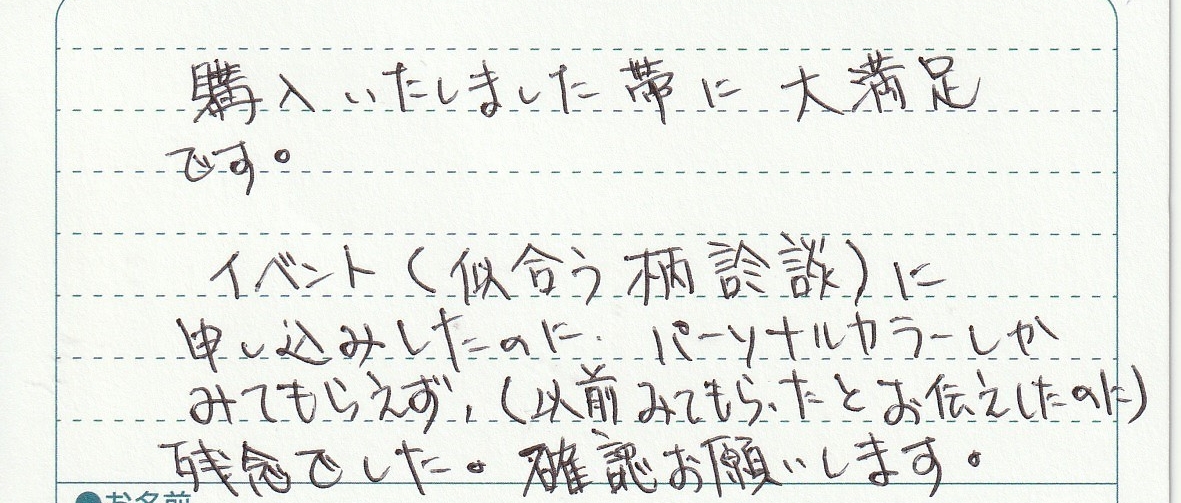 購入いたしました帯に大満足
です。
イベント(似合う柄診談)に
申し込みしたのに、パーソナルカラーしか
みてもらえず、(以前みてもらったとお伝えしたのに)
残念でした。確認お願いします。
●お名前